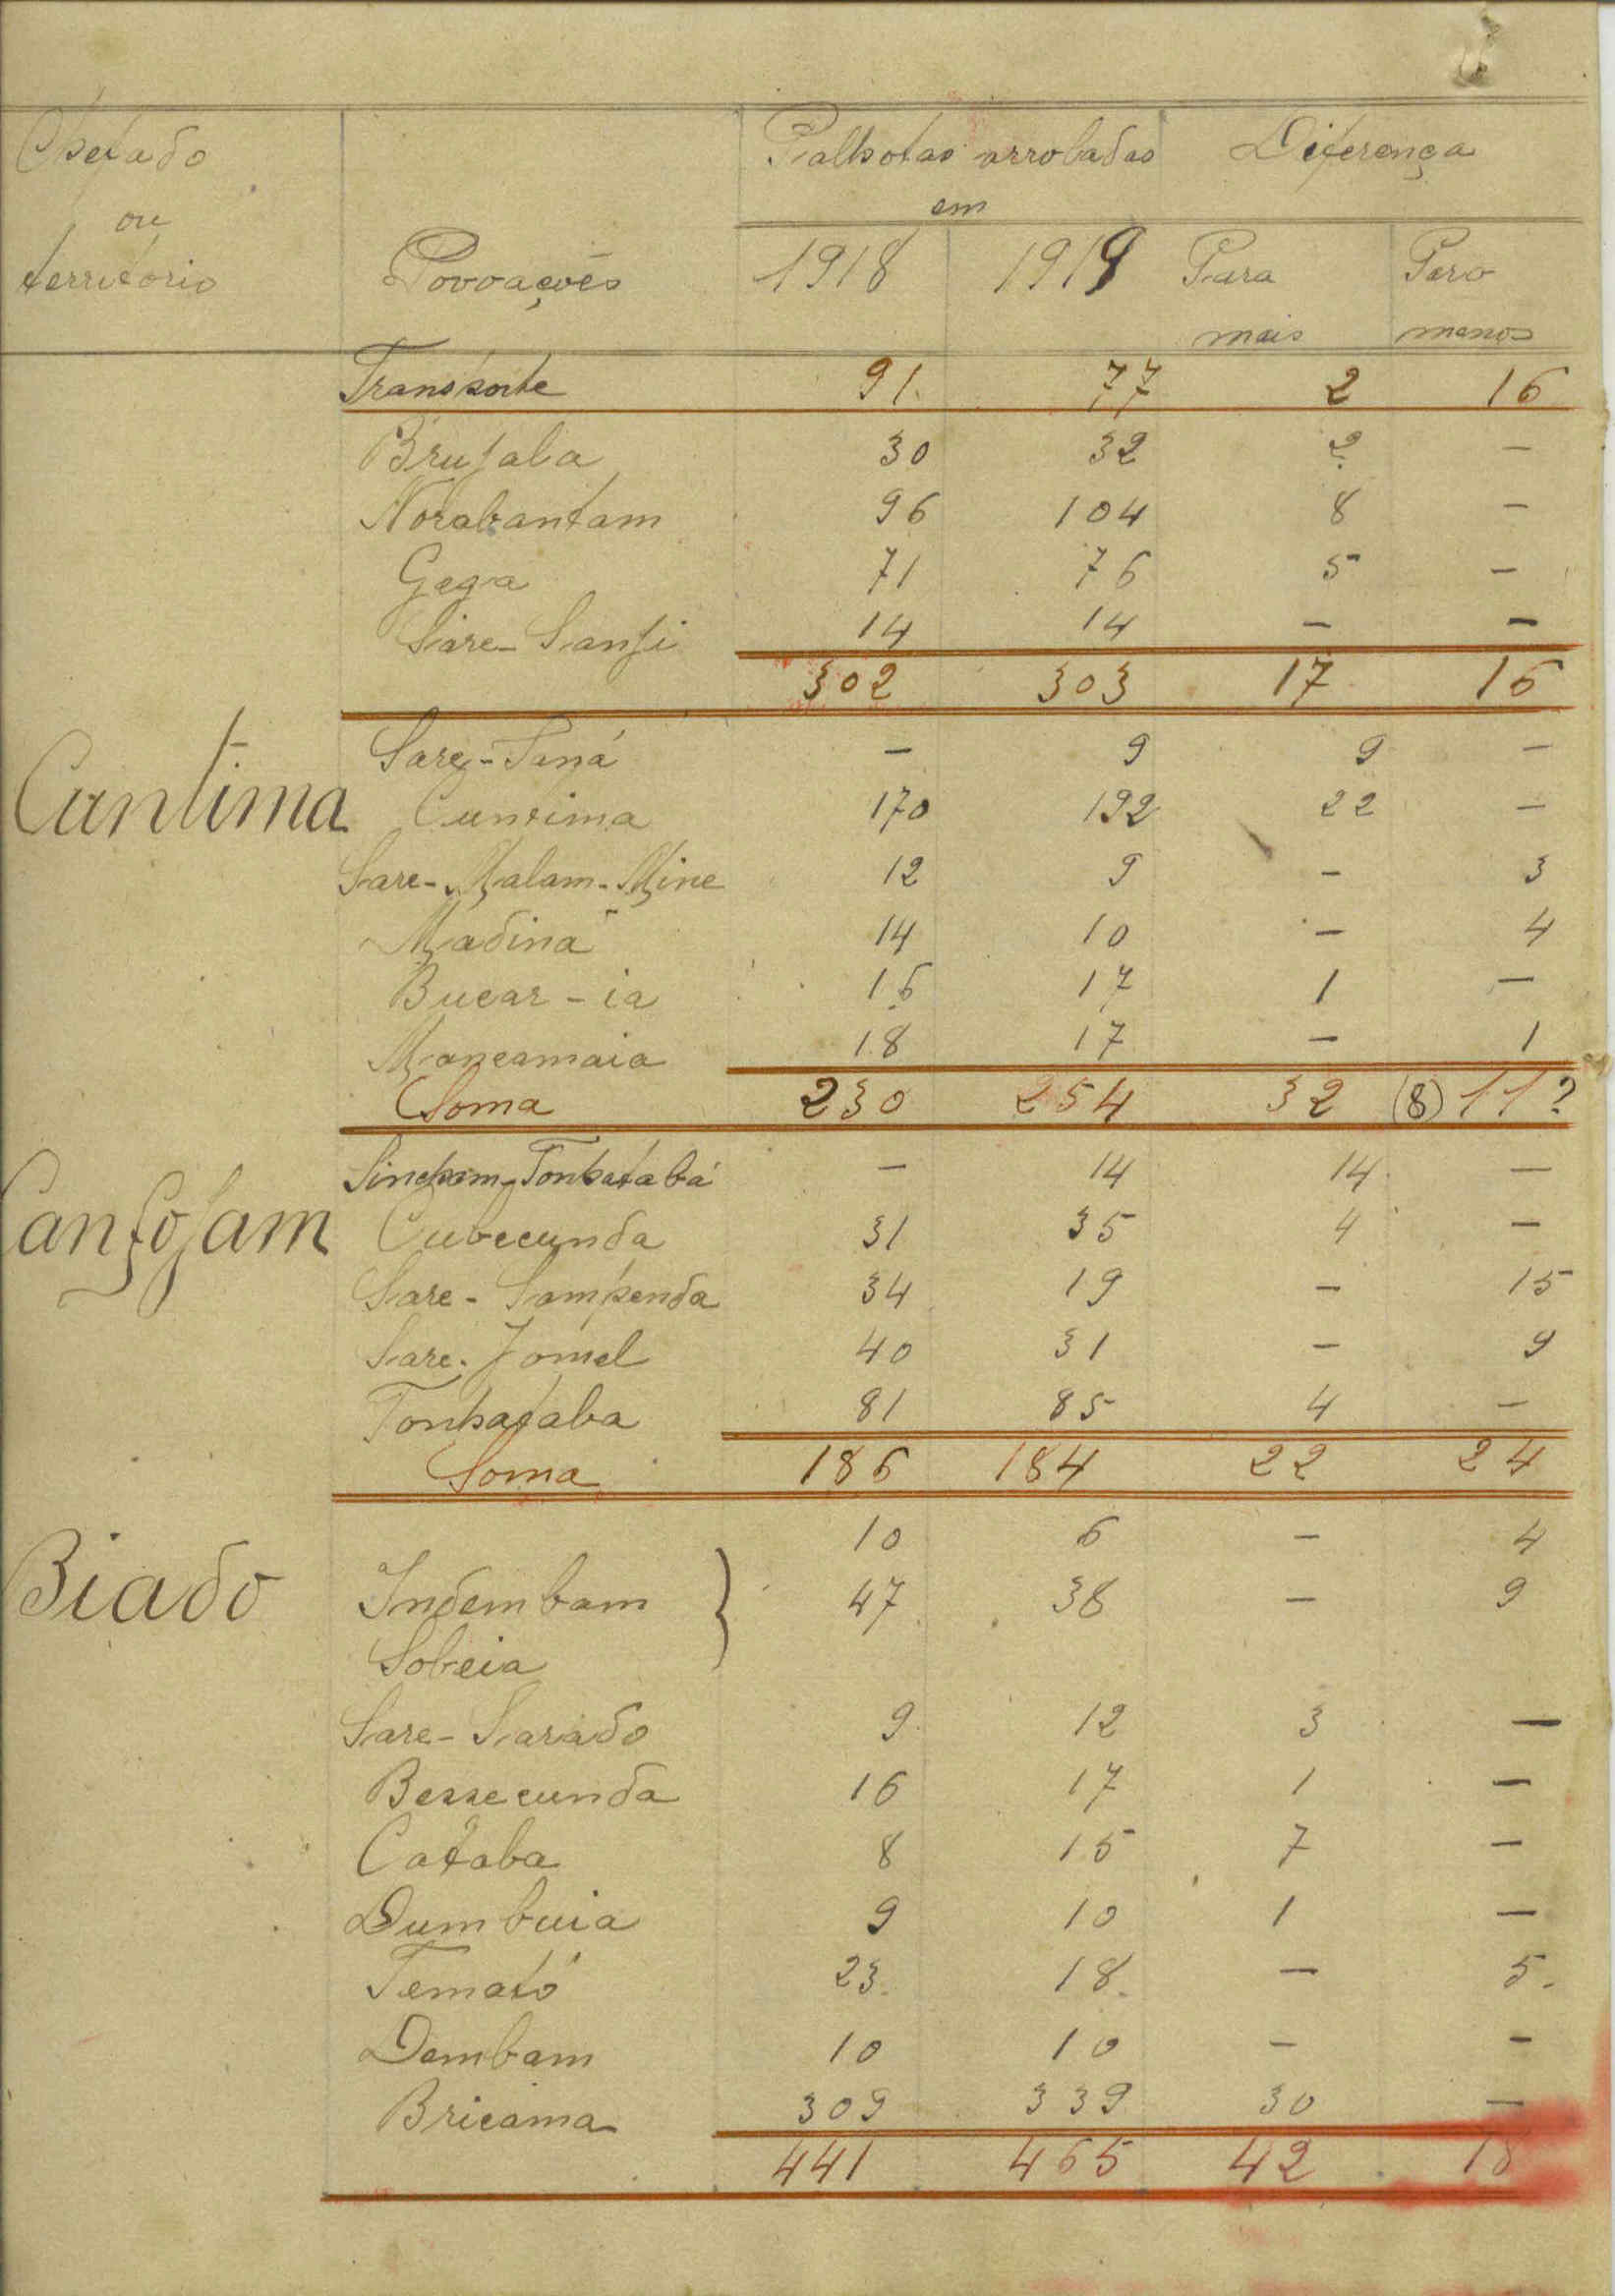 Chefado
ou
território
Povoações
Palhotas arroladas
em
Diferença
1918 1919 Para mais Para menos
Transporte 91 77 2 16
Brujaba 30 32 2 —
Norabantam 96 104 8 —
Gega 71 76 5 —
Sare-Sanji 14 14 — —
302 303 17 16
Sare-Taná — 9 9 —
Cuntima Cuntima 170 192 22 —
Sare-Malam-Mine 12 9 — 3
Madina 14 10 — 4
Bucar-ia 16 17 1 —
Mancamaia 18 17 — 1
Soma 230 254 32 (8) 11?
Sincham-Tonhatabá — 14 14 —
Canfojam Cubecunda 31 35 4 —
Sare-Sampenda 34 19 — 15
Sare-Jomel 40 31 — 9
Tonhataba 81 85 4 —
Soma 186 184 22 24
10 6 — 4
Biado Indembam } 47 38 — 9
Sobeia
Sare-Sarado 9 12 3 —
Bessecunda 16 17 1 —
Cataba 8 15 7 —
Dumbuia 9 10 1 —
Temató 23 18 — 5
Dembam 10 10 — —
Bricama 309 339 30 —
441 465 42 18